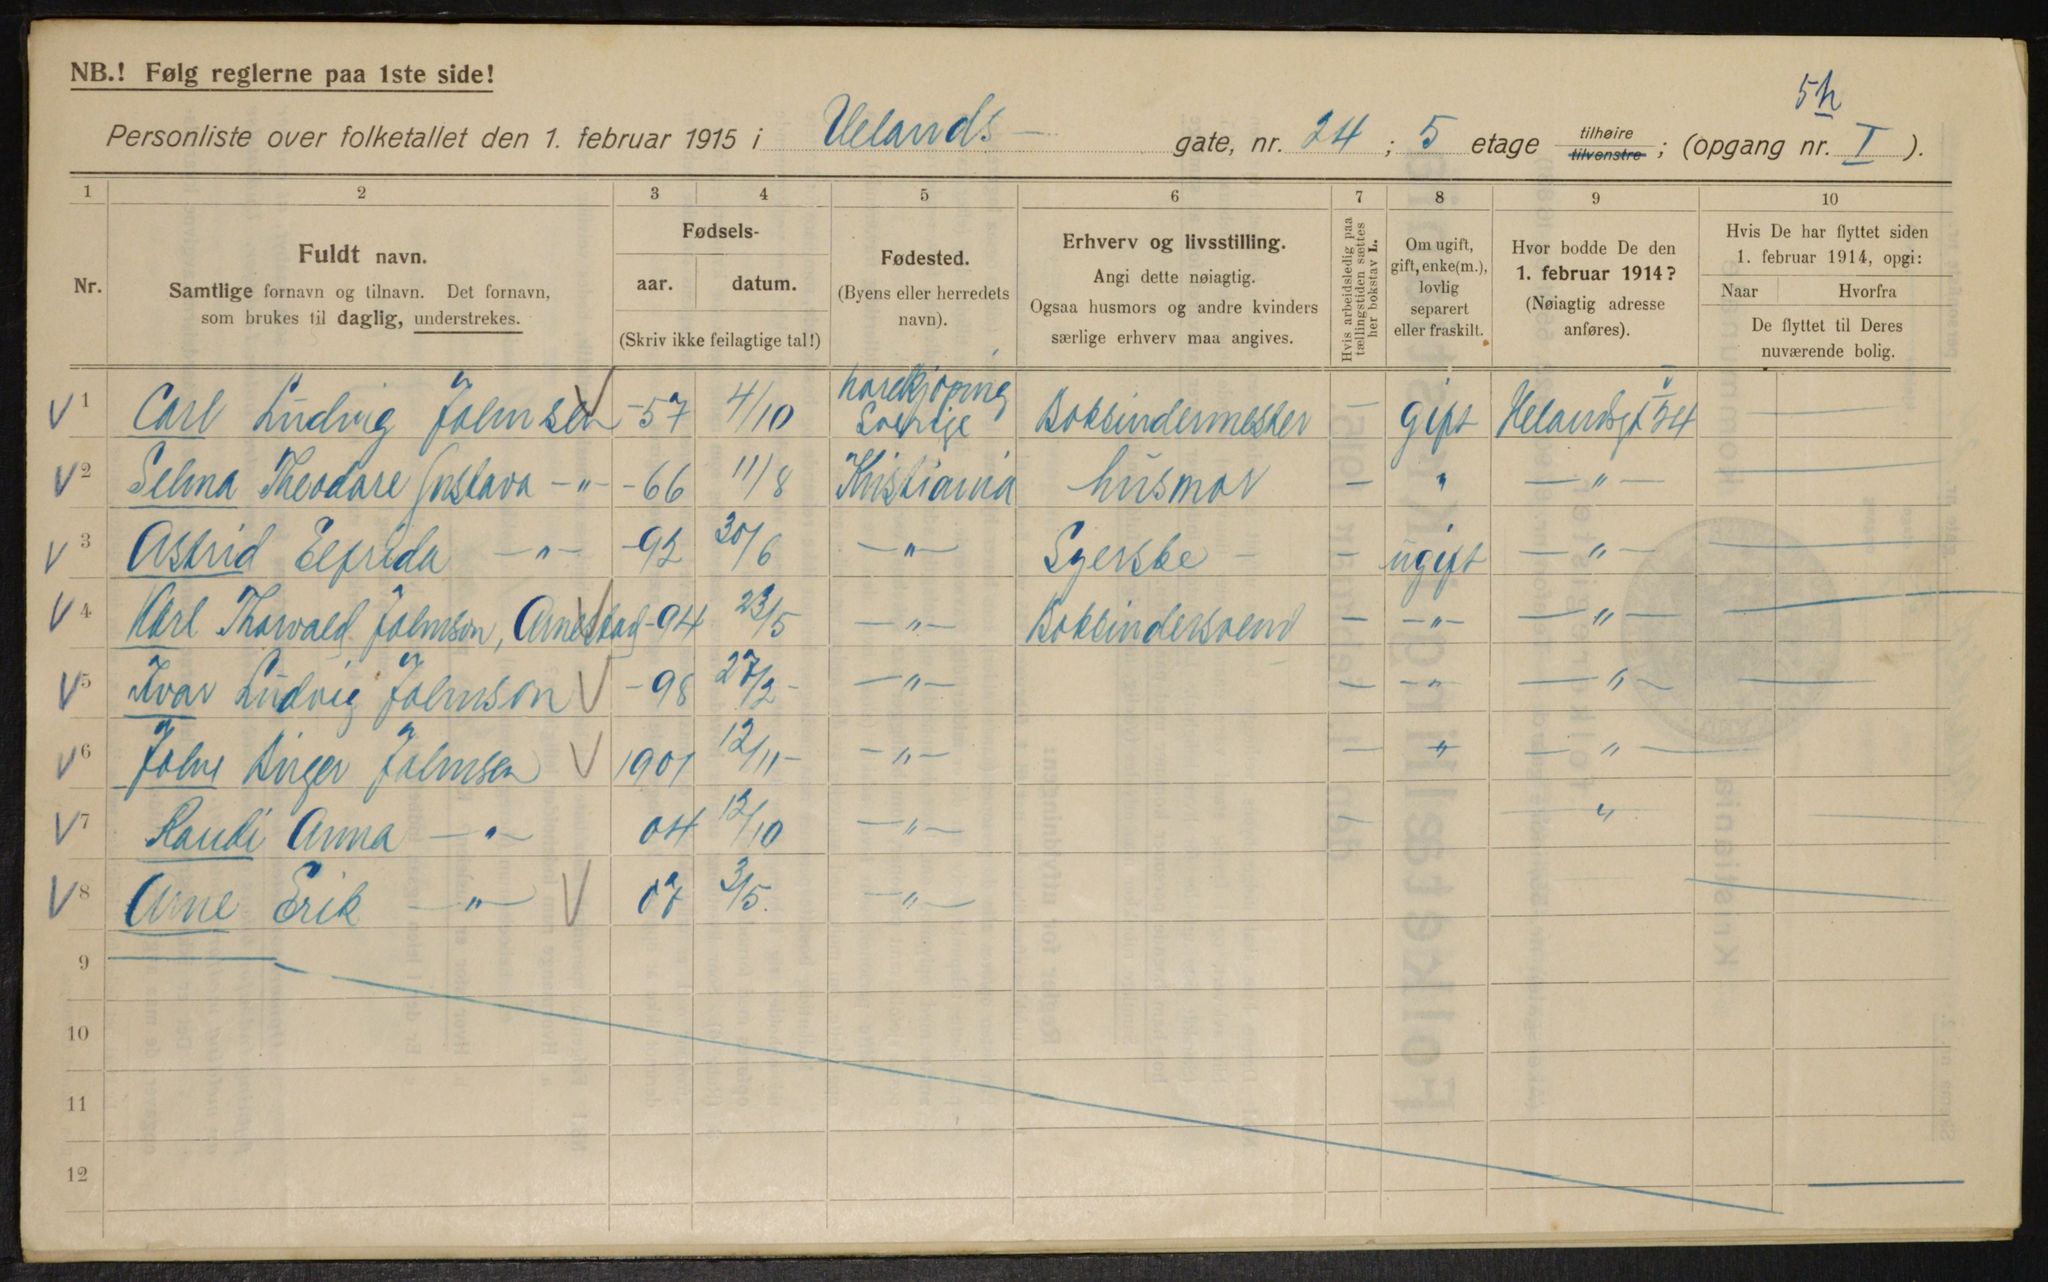 NB.! Følg reglerne paa 1ste side!
5 h
Personliste over folketallet den 1. februar 1915 i Uelands — gate, nr. 24 ; 5 etage tilhøire tilvenstre ; (opgang nr. I ).
1 2 3 4 5 6 7 8 9 10
Nr.
Fuldt navn.
Samtlige fornavn og tilnavn. Det fornavn,
som brukes til daglig, understrekes.
Fødsels-
aar. datum.
(Skriv ikke feilagtige tal!)
Fødested.
(Byens eller herredets
navn).
Erhverv og livsstilling.
Angi dette nøiagtig.
Ogsaa husmors og andre kvinders
særlige erhverv maa angives.
Hvis arbeidsledig paa
tællingstiden sættes
her bokstav L.
Om ugift,
gift, enke(m.),
lovlig
separert
eller fraskilt.
Hvor bodde De den
1. februar 1914?
(Nøiagtig adresse
anføres).
Hvis De har flyttet siden
1. februar 1914, opgi:
Naar Hvorfra
De flyttet til Deres
nuværende bolig.
V 1 Carl Ludvig Johnsen V -57 4/10 Sverige Bokbindermester — gift Uelandsgt —
V 2 Selma Theodare Gustava —"— -66 11/8 Kristiania husmor — " —"— —
V 3 Astrid Elfrida —"— -92 30/6 —"— Syerske — — ugift —"— —
V 4 Karl Thorvald Johnson, Arnestad V -94 23/5 —"— Bokbindersvend — —"— —"— —
V 5 Ivar Ludvig Johnson V -98 27/2 — —"— — —"— —"— —
V 6 John Birger Johnsen V 1901 12/11 — —"— — " —"— —
V 7 Randi Anna —"— 04 12/10 —"— — " —
V 8 Arne Erik —"— V 07 3/5. —"— —
9
10
11
12